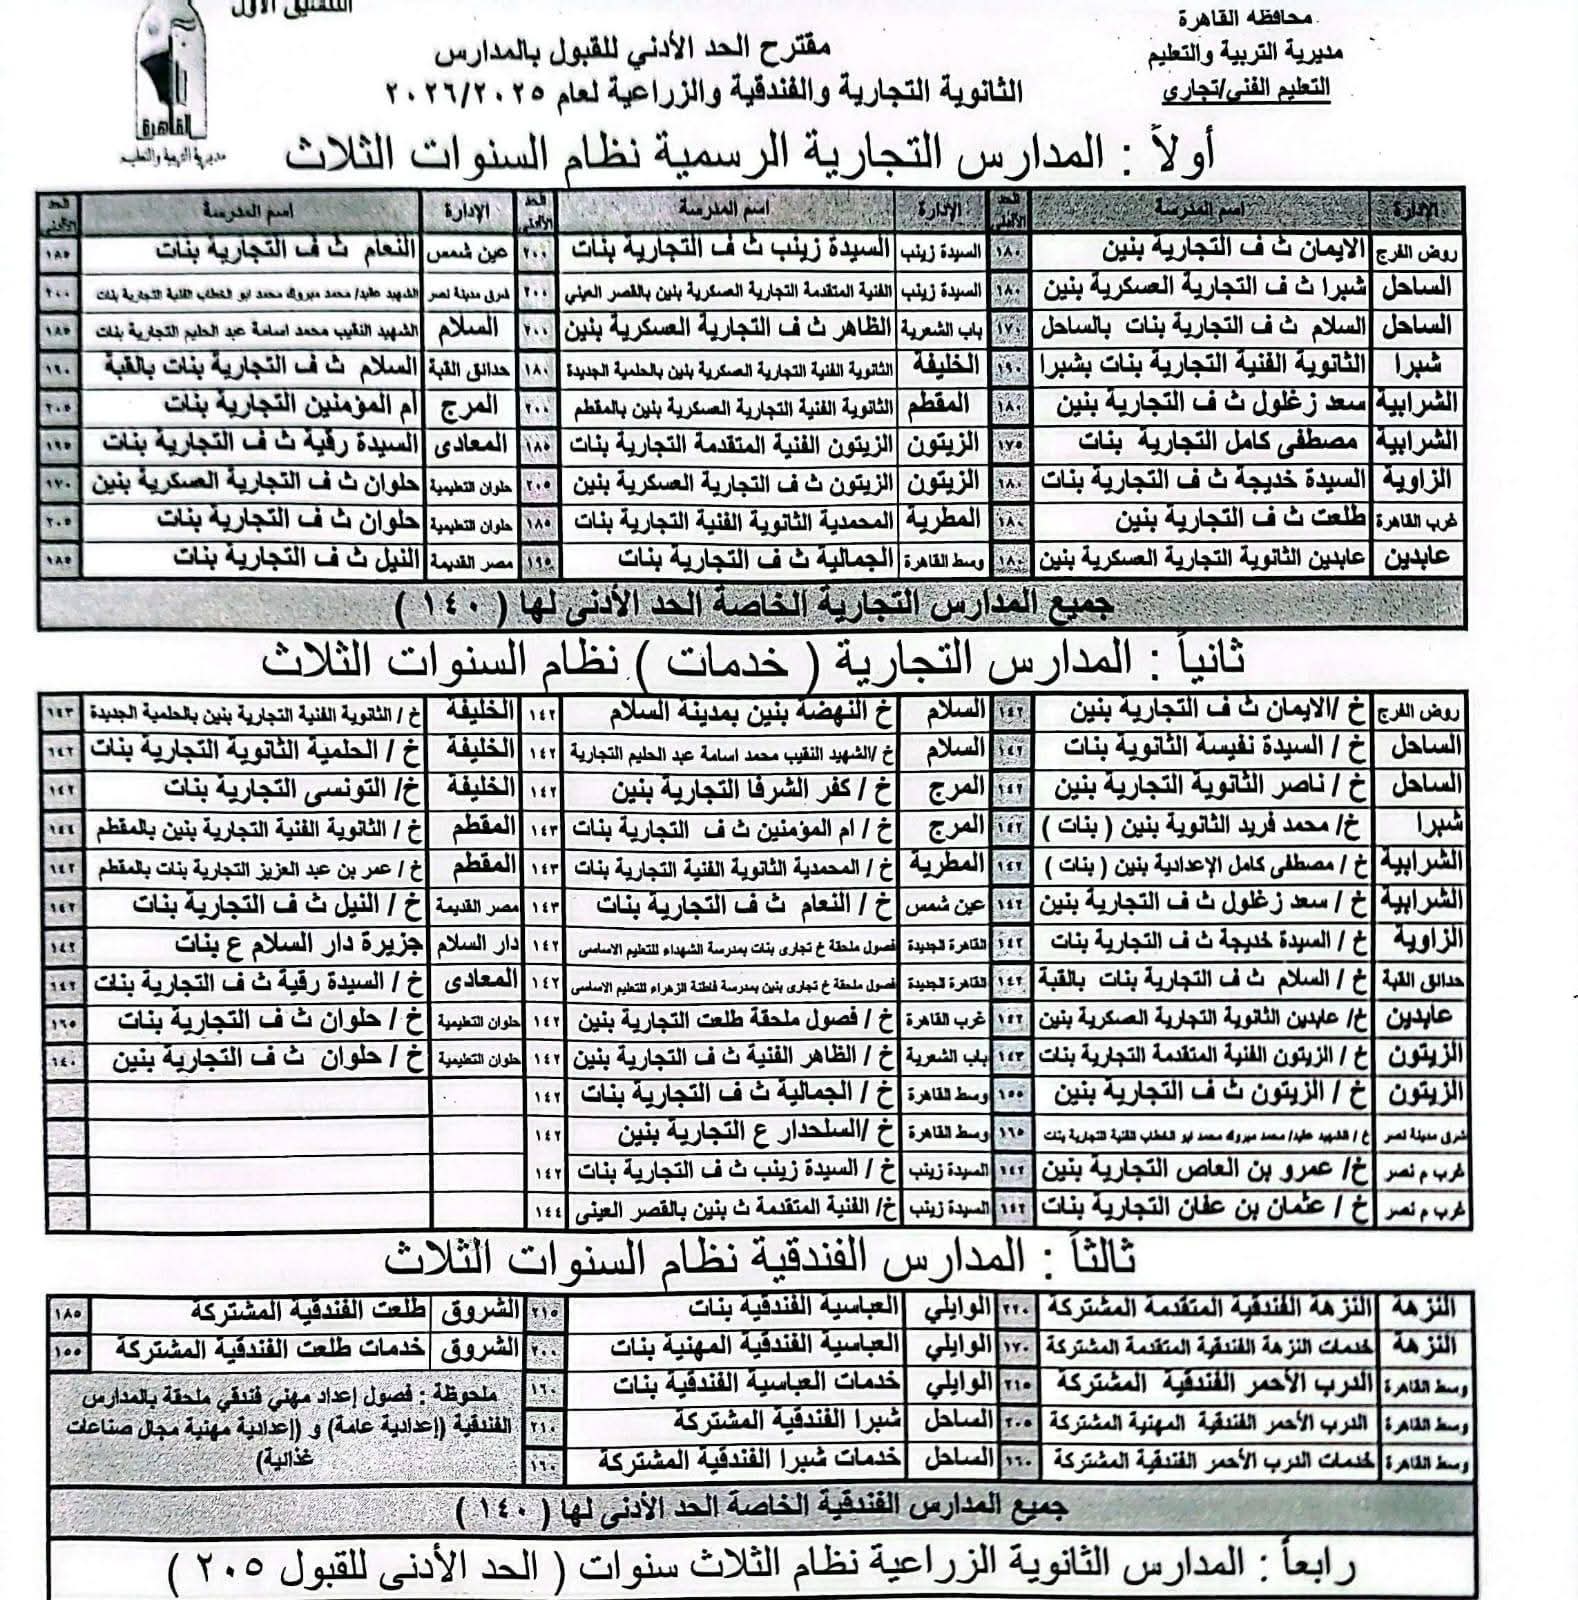 محافظة القاهرة
مديرية التربية والتعليم
التعليم الفني/تجارى
التنسيق الأول
القاهرة
مديرية التربية والتعليم
مقترح الحد الأدني للقبول بالمدارس
الثانوية التجارية والفندقية والزراعية لعام ٢٠٢٦/٢٠٢٥
أولاً : المدارس التجارية الرسمية نظام السنوات الثلاث
الإدارة اسم المدرسة الحد الأدنى الإدارة اسم المدرسة الحد الأدنى الإدارة اسم المدرسة الحد الأدنى
روض الفرج الايمان ث ف التجارية بنين ١٨٠ السيدة زينب السيدة زينب ث ف التجارية بنات ٢٠٠ عين شمس النعام ث ف التجارية بنات ١٨٥
الساحل شبرا ث ف التجارية العسكرية بنين ١٨٠ السيدة زينب الفنية المتقدمة التجارية العسكرية بنين بالقصر العيني ٢٠٠ شرق مدينة نصر الشهيد عقيد/ محمد مبروك محمد ابو الخطاب الفنية التجارية بنات ٢٠٠
الساحل السلام ث ف التجارية بنات بالساحل ١٧٠ باب الشعرية الظاهر ث ف التجارية العسكرية بنين ٢٠٠ السلام الشهيد النقيب محمد اسامة عبد الحليم التجارية بنات ١٨٥
شبرا الثانوية الفنية التجارية بنات بشبرا ١٩٠ الخليفة الثانوية الفنية التجارية العسكرية بنين بالحلمية الجديدة ١٨٠ حدائق القبة السلام ث ف التجارية بنات بالقبة ١٩٠
الشرابية سعد زغلول ث ف التجارية بنين ١٨٠ المقطم الثانوية الفنية التجارية العسكرية بنين بالمقطم ٢٠٠ المرج أم المؤمنين التجارية بنات ٢٠٥
الشرابية مصطفى كامل التجارية بنات ١٧٥ الزيتون الزيتون الفنية المتقدمة التجارية بنات ١٨٥ المعادى السيدة رقية ث ف التجارية بنات ١٩٥
الزاوية السيدة خديجة ث ف التجارية بنات ١٨٠ الزيتون الزيتون ث ف التجارية العسكرية بنين ٢٠٥ حلوان التعليمية حلوان ث ف التجارية العسكرية بنين ١٧٠
غرب القاهرة طلعت ث ف التجارية بنين ١٨٠ المطرية المحمدية الثانوية الفنية التجارية بنات ١٨٥ حلوان التعليمية حلوان ث ف التجارية بنات ٢٠٥
عابدين عابدين الثانوية التجارية العسكرية بنين ١٨٠ وسط القاهرة الجمالية ث ف التجارية بنات ١٩٥ مصر القديمة النيل ث ف التجارية بنات ١٨٥
جميع المدارس التجارية الخاصة الحد الأدنى لها ( ١٤٠ )
ثانياً : المدارس التجارية ( خدمات ) نظام السنوات الثلاث
روض الفرج خ /الايمان ث ف التجارية بنين ١٤٢ السلام خ النهضة بنين بمدينة السلام ١٤٢ الخليفة خ / الثانوية الفنية التجارية بنين بالحلمية الجديدة ١٤٣
الساحل خ / السيدة نفيسة الثانوية بنات ١٤٢ السلام خ /الشهيد النقيب محمد اسامة عبد الحليم التجارية ١٤٢ الخليفة خ / الحلمية الثانوية التجارية بنات ١٤٢
الساحل خ / ناصر الثانوية التجارية بنين ١٤٢ المرج خ / كفر الشرفا التجارية بنين ١٤٢ الخليفة خ/ التونسى التجارية بنات ١٤٢
شبرا خ/ محمد فريد الثانوية بنين ( بنات ) ١٤٢ المرج خ / ام المؤمنين ث ف التجارية بنات ١٤٣ المقطم خ / الثانوية الفنية التجارية بنين بالمقطم ١٤٤
الشرابية خ / مصطفى كامل الإعدادية بنين ( بنات ) ١٤٢ المطرية خ / المحمدية الثانوية الفنية التجارية بنات ١٤٣ المقطم خ / عمر بن عبد العزيز التجارية بنات بالمقطم ١٤٢
الشرابية خ / سعد زغلول ث ف التجارية بنين ١٤٢ عين شمس خ / النعام ث ف التجارية بنات ١٤٣ مصر القديمة خ / النيل ث ف التجارية بنات ١٤٢
الزاوية خ / السيدة خديجة ث ف التجارية بنات ١٤٢ القاهرة الجديدة فصول ملحقة خ تجارى بنات بمدرسة الشهداء للتعليم الاساسى ١٤٢ دار السلام جزيرة دار السلام ع بنات ١٤٢
حدائق القبة خ / السلام ث ف التجارية بنات بالقبة ١٤٢ القاهرة الجديدة فصول ملحقة خ تجارى بنين بمدرسة فاطنة الزهراء للتعليم الاساسى ١٤٢ المعادى خ / السيدة رقية ث ف التجارية بنات ١٤٢
عابدين خ/ عابدين الثانوية التجارية العسكرية بنين ١٤٢ غرب القاهرة خ / فصول ملحقة طلعت التجارية بنين ١٤٢ حلوان التعليمية خ / حلوان ث ف التجارية بنات ١٦٥
الزيتون خ / الزيتون الفنية المتقدمة التجارية بنات ١٤٣ باب الشعرية خ / الظاهر الفنية ث ف التجارية بنين ١٤٢ حلوان التعليمية خ / حلوان ث ف التجارية بنين ١٤٠
الزيتون خ / الزيتون ث ف التجارية بنين ١٥٥ وسط القاهرة خ / الجمالية ث ف التجارية بنات ١٤٢
شرق مدينة نصر خ / الشهيد عقيد/ محمد مبروك محمد ابو الخطاب الفنية التجارية بنات ١٦٥ وسط القاهرة خ /السلحدار ع التجارية بنين ١٤٢
غرب م نصر خ/ عمرو بن العاص التجارية بنين ١٤٢ السيدة زينب خ / السيدة زينب ث ف التجارية بنات ١٤٢
غرب م نصر خ / عثمان بن عفان التجارية بنات ١٤٢ السيدة زينب خ/ الفنية المتقدمة ث بنين بالقصر العينى ١٤٤
ثالثاً : المدارس الفندقية نظام السنوات الثلاث
النزهة النزهة الفندقية المتقدمة المشتركة ٢٢٠ الوايلي العباسية الفندقية بنات ٢١٥ الشروق طلعت الفندقية المشتركة ١٨٥
النزهة خدمات النزهة الفندقية المتقدمة المشتركة ١٧٠ الوايلي العباسية الفندقية المهنية بنات ٢٠٠ الشروق خدمات طلعت الفندقية المشتركة ١٥٥
وسط القاهرة الدرب الأحمر الفندقية المشتركة ٢١٥ الوايلي خدمات العباسية الفندقية بنات ١٦٠
وسط القاهرة الدرب الأحمر الفندقية المهنية المشتركة ٢٠٥ الساحل شبرا الفندقية المشتركة ٢١٠
وسط القاهرة خدمات الدرب الأحمر الفندقية المشتركة ١٦٠ الساحل خدمات شبرا الفندقية المشتركة ١٦٠
ملحوظة : فصول إعداد مهني فندقي ملحقة بالمدارس
الفندقية (إعدادية عامة) و (إعدادية مهنية مجال صناعات
غذائية)
جميع المدارس الفندقية الخاصة الحد الأدنى لها ( ١٤٠ )
رابعاً : المدارس الثانوية الزراعية نظام الثلاث سنوات ( الحد الأدنى للقبول ٢٠٥ )